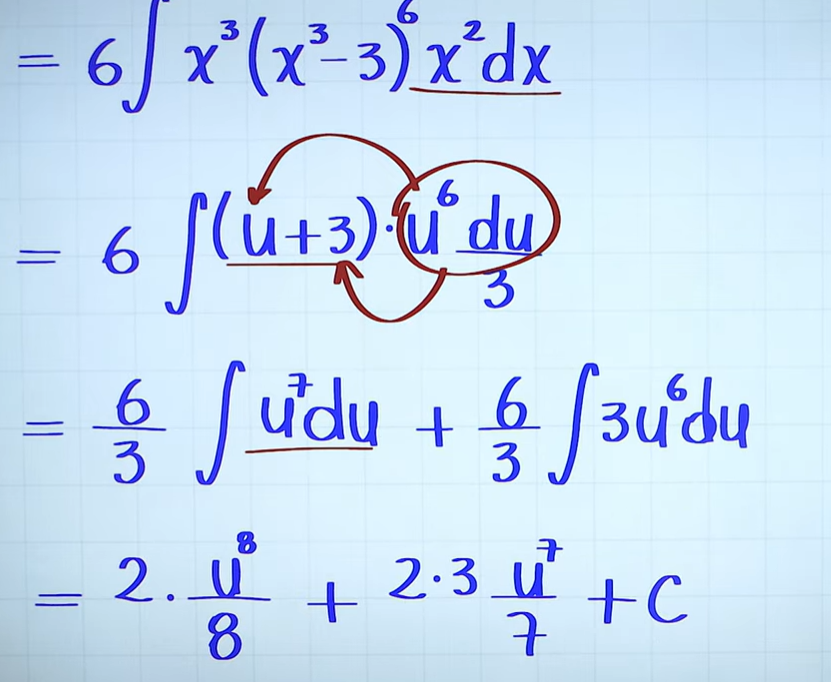 = 6∫x³(x³-3)⁶x²dx
= 6∫(u+3)·u⁶ du/3
= 6/3 ∫u⁷du + 6/3 ∫3u⁶du
= 2. u⁸/8 + 2·3 u⁷/7 + C